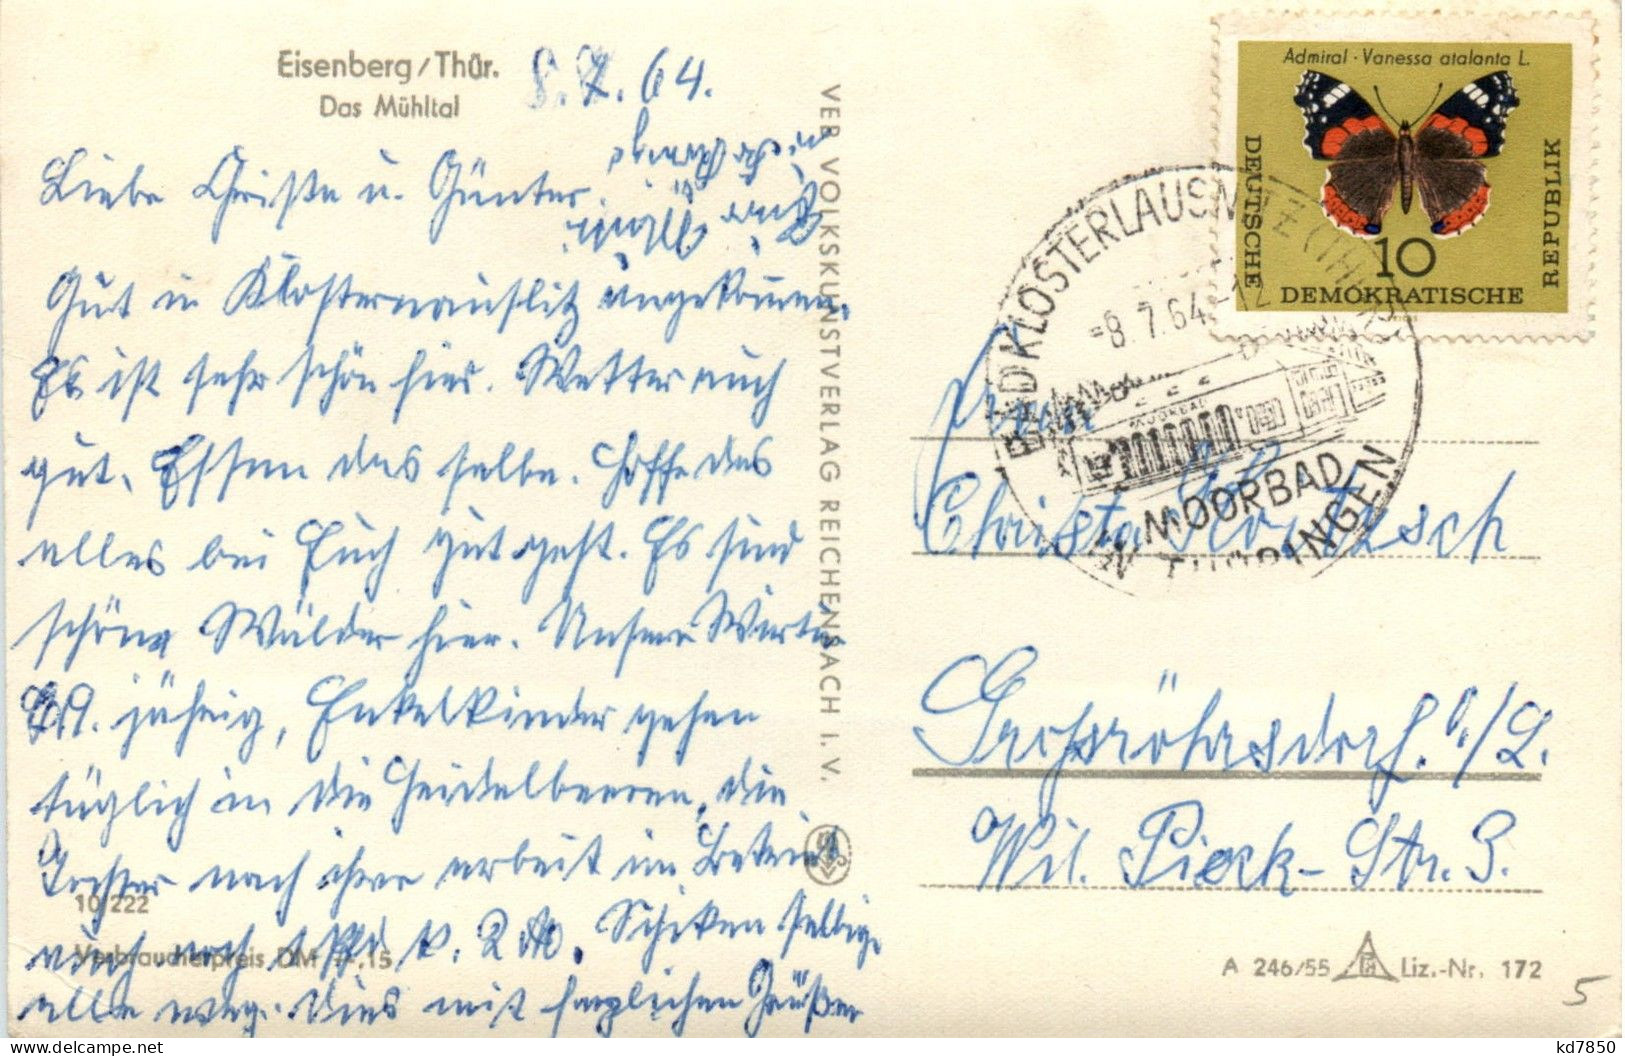 Eisenberg/Thür.
Das Mühltal
8.7.64.
Liebe Christa u. Günter
Gut in Klosterlausnitz angekommen.
Es ist sehr schön hier. Wetter auch
gut. Essen das selbe. Hoffe das
alles bei Euch gut geht. Es sind
schöne Wälder hier. Unsere Wirtin
jährig, Enkelkinder gehen
täglich in die Heidelbeeren, die
Tochter nach ihrer arbeit im Betrieb
auch noch 1 Pfd v. 2 M. Schiken selbige
alle weg. Dies mit herzlichen Grüßen
VEB VOLKSKUNSTVERLAG REICHENBACH I. V.
10/222
Verbraucherpreis DM -.15
Admiral · Vanessa atalanta L.
DEUTSCHE
DEMOKRATISCHE
REPUBLIK
10
BAD KLOSTERLAUSNITZ (THÜR)
-8.7.64-12
MOORBAD
MOORBAD
THÜRINGEN
Frau
Christa
Großröhrsdorf. O./L.
Wil. Pieck-Str. 3.
A 246/55 Liz.-Nr. 172
5
kd7850